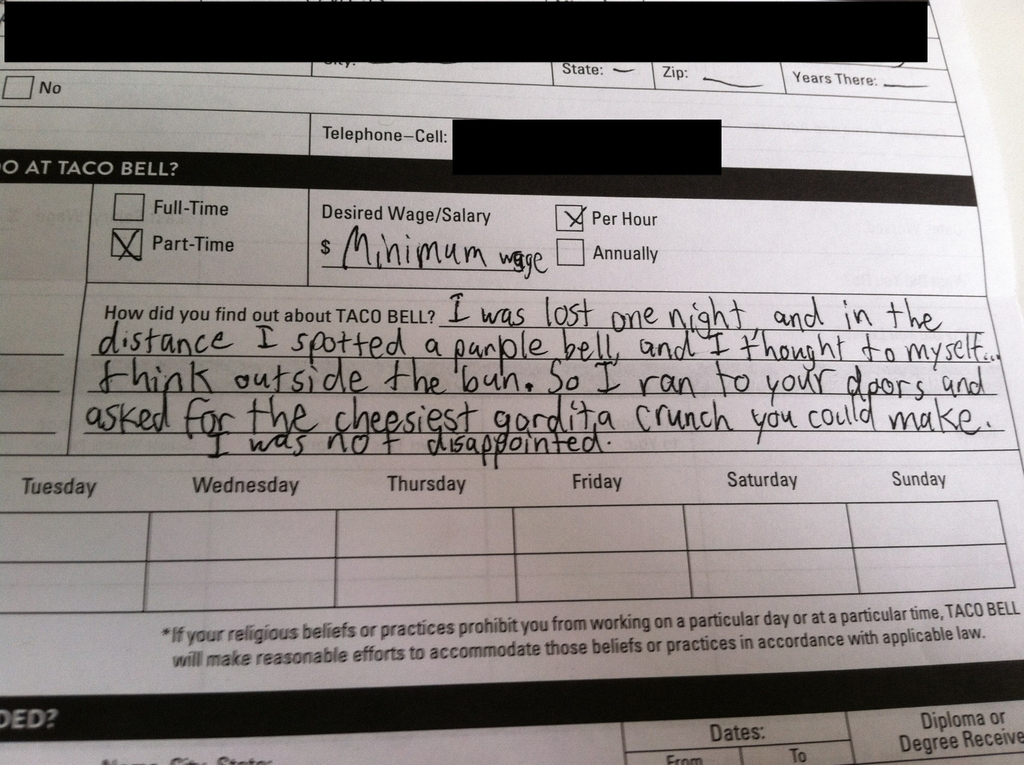 State: Zip: Years There:
No
Telephone-Cell:
O AT TACO BELL?
Full-Time
Part-Time
Desired Wage/Salary
$ Minimum wage
Per Hour
Annually
How did you find out about TACO BELL? I was lost one night, and in the
distance I spotted a purple bell, and I thought to myself...
think outside the bun. So I ran to your doors and
asked for the cheesiest gordita crunch you could make.
I was not disappointed.
Tuesday Wednesday Thursday Friday Saturday Sunday
*If your religious beliefs or practices prohibit you from working on a particular day or at a particular time, TACO BELL
will make reasonable efforts to accommodate those beliefs or practices in accordance with applicable law.
DED?
Dates:
Diploma or
Degree Receive
From To